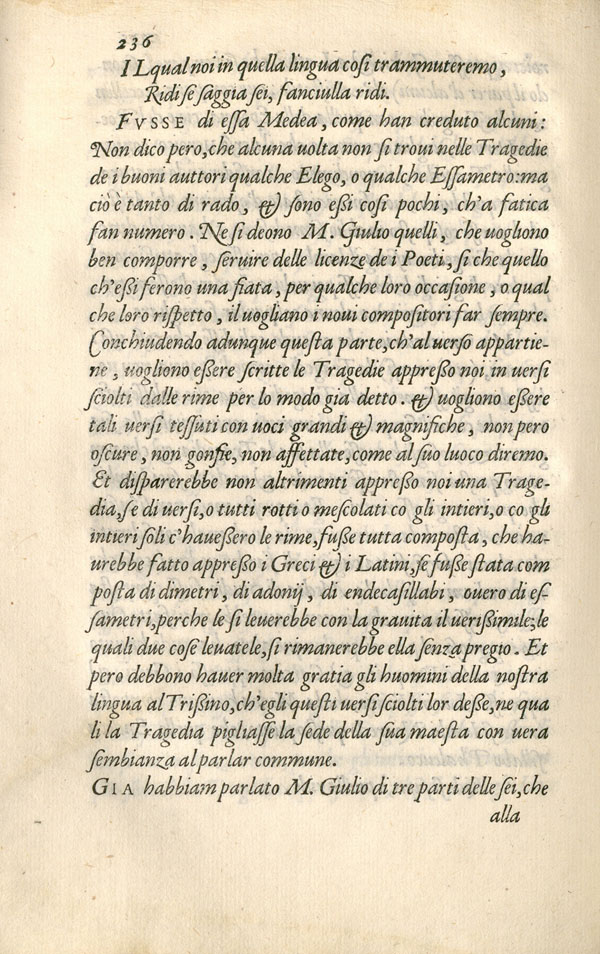 236
I Lqual noi in quella lingua cosi trammuteremo,
Ridi se saggia sei, fanciulla ridi.
FVSSE di essa Medea, come han creduto alcuni:
Non dico pero, che alcuna volta non si trovi nelle Tragedie
de i buoni auttori qualche Elego, o qualche Essametro: ma
ciò è tanto di rado, & sono eßi cosi pochi, ch'a fatica
fan numero. Ne si deono M. Giulio quelli, che uogliono
ben comporre, seruire delle licenze de i Poeti, si che quello
ch'eßi ferono una fiata, per qualche loro occasione, o qual
che loro rispetto, il uogliano i noui compositori far sempre.
Conchiudendo adunque questa parte, ch'al uerso appartie-
ne, uogliono eßere scritte le Tragedie appreßo noi in uersi
sciolti dalle rime per lo modo gia detto. & uogliono eßere
tali uersi tessuti con uoci grandi & magnifiche, non pero
oscure, non gonfie, non affettate, come al suo luoco diremo.
Et disparerebbe non altrimenti appreßo noi una Trage-
dia, se di uersi, o tutti rotti o mescolati co gli intieri, o co gli
intieri soli c'haueßero le rime, fuße tutta composta, che ha-
urebbe fatto appreßo i Greci & i Latini, se fuße stata com
posta di dimetri, di adonij, di endecasillabi, ouero di es-
sametri, perche le si leuerebbe con la grauita il uerißimile; le
quali due cose leuatele, si rimanerebbe ella senza pregio. Et
pero debbono hauer molta gratia gli huomini della nostra
lingua al Trißino, ch'egli questi uersi sciolti lor deße, ne qua
li la Tragedia pigliasse la sede della sua maesta con uera
sembianza al parlar commune.
GIA habbiam parlato M. Giulio di tre parti delle sei, che
alla